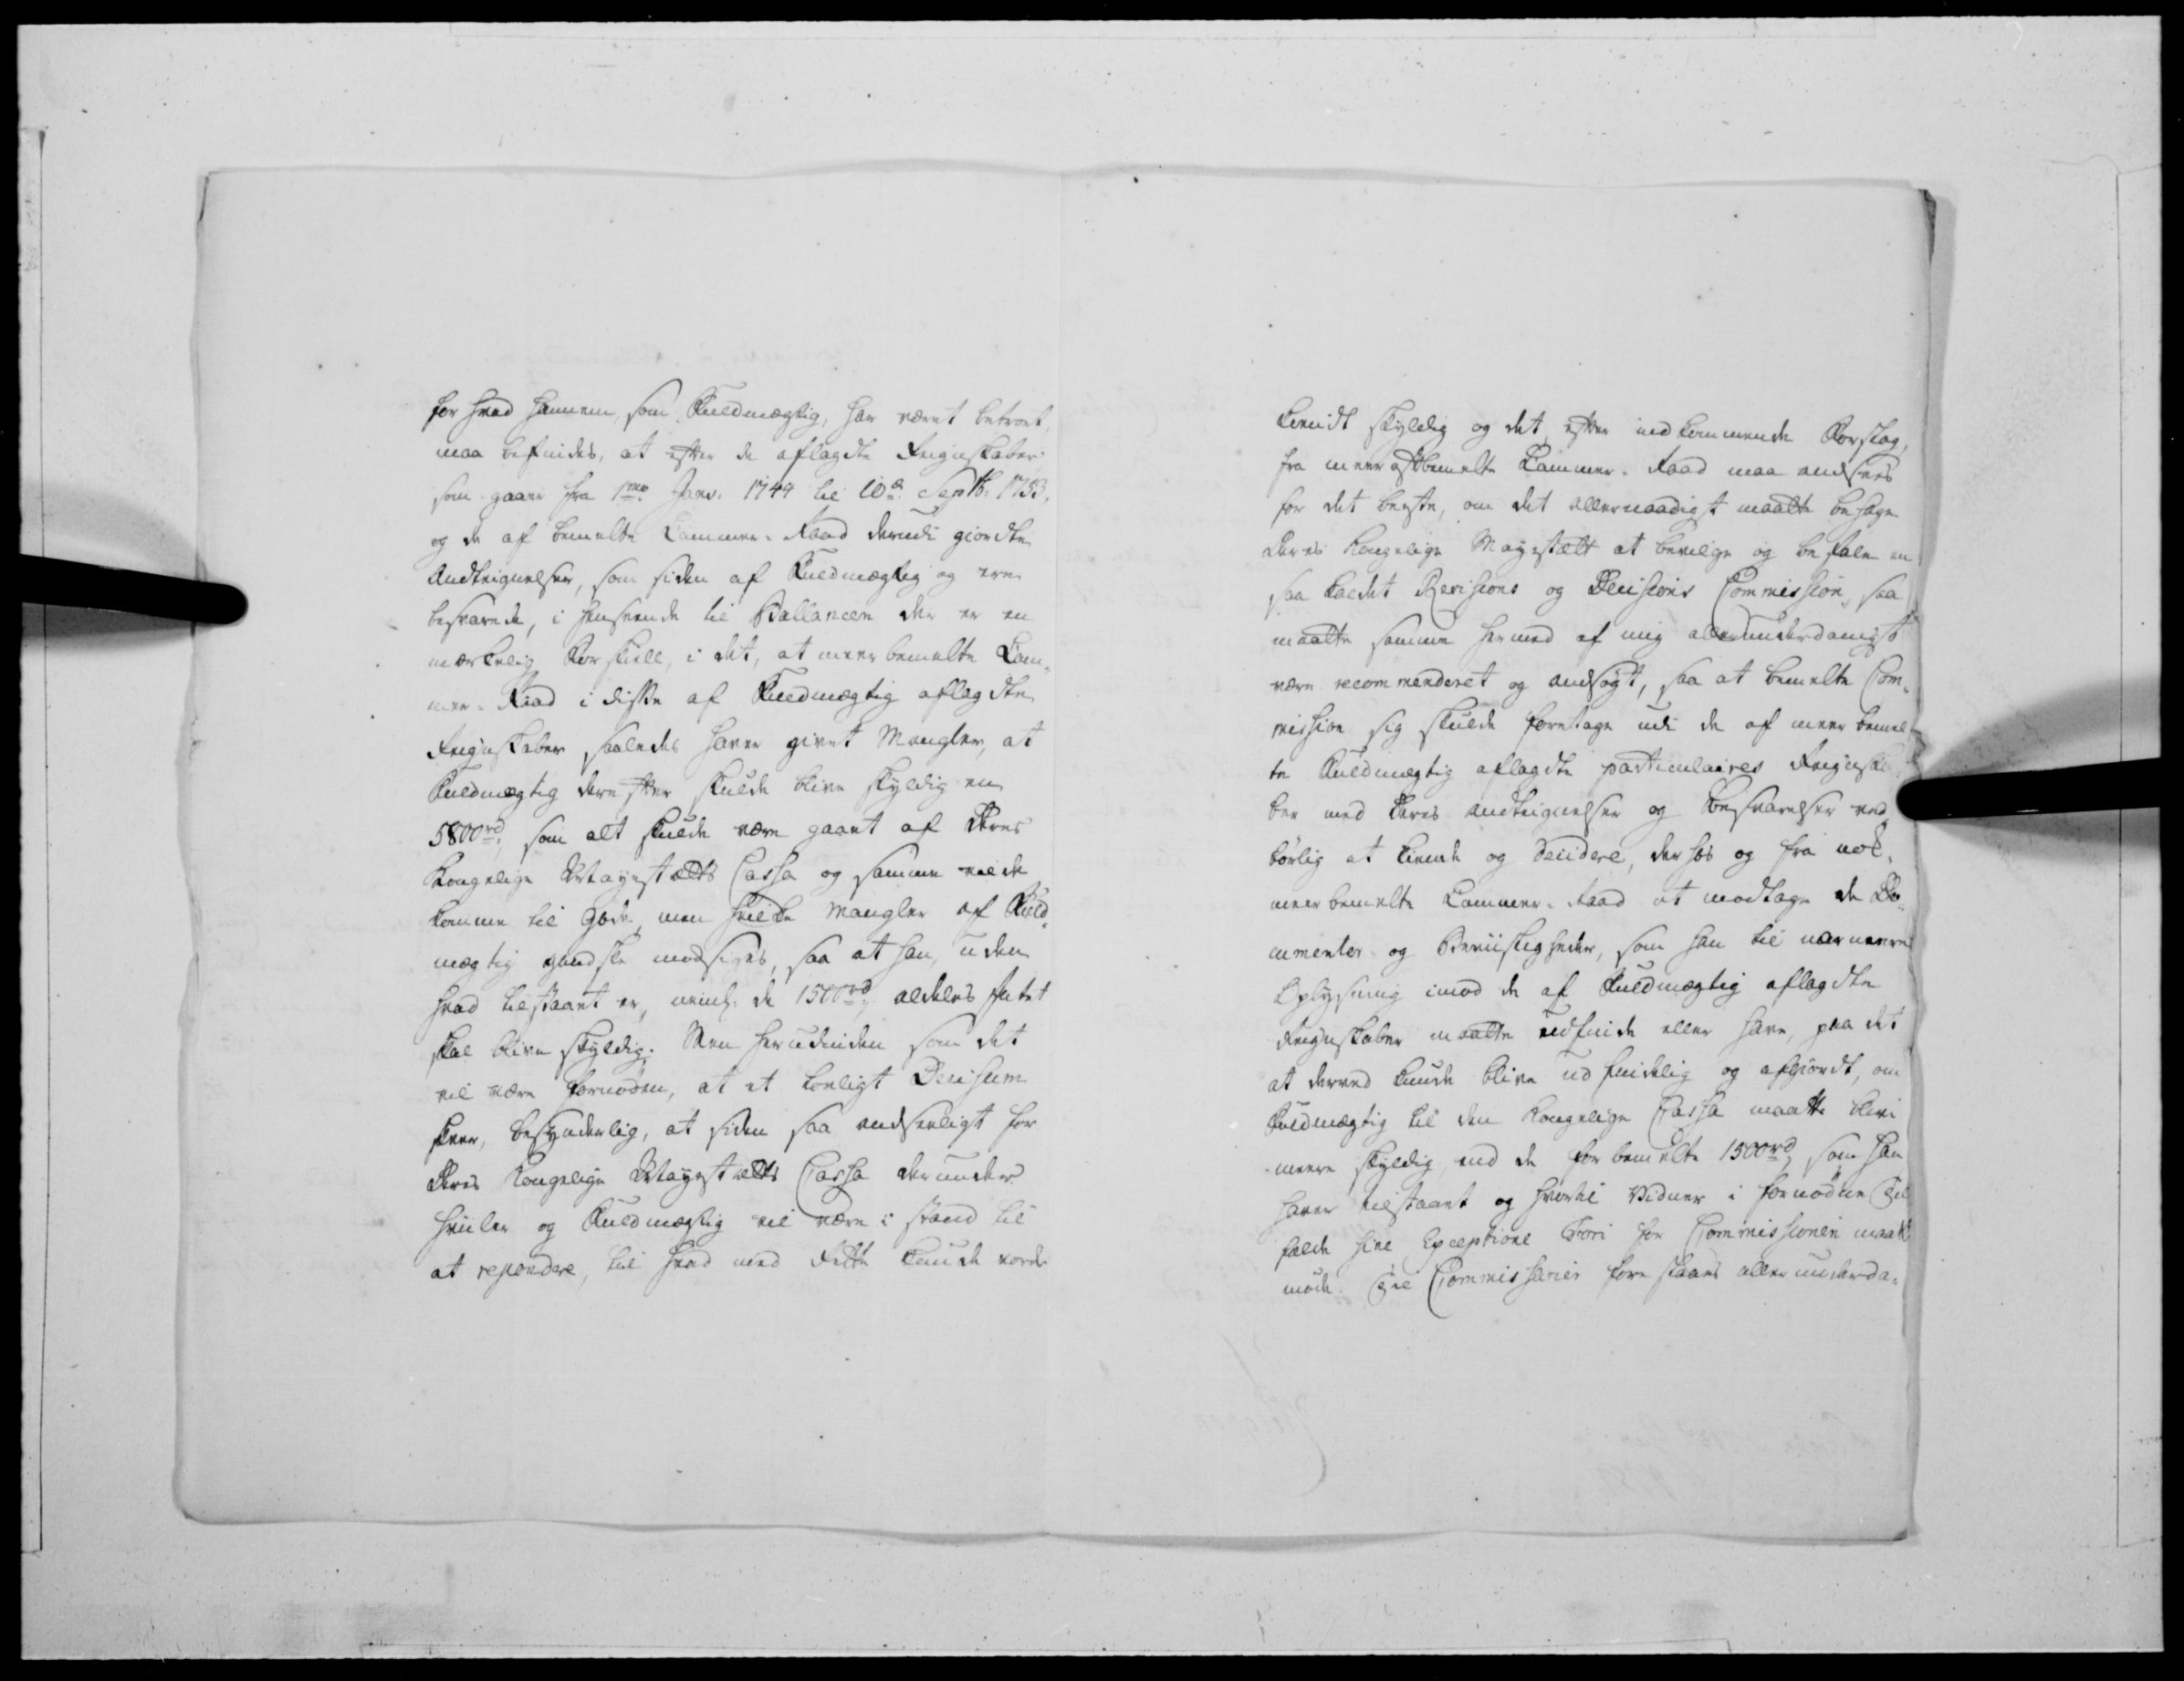 for hvad hannem, som Fuldmægtig, har været betroet,
maa befindes, at efter de aflagdte Regnskaber
som gaaer fra 1mo Janv. 1749 til 10de Septb. 1753,
og de af bemelte Cammer-Raad derudi giordte
Andtegnelser, som siden af Fuldmægtig og ere
besvarede, i henseende til Ballancen der er en
mærkelig Forskiell, i det, at meerbemelte Cam-
mer-Raad i disse af Fuldmægtig aflagdte
Regnskaber saaledes haver givet Mangler, at
Fuldmægtig derefter skulde blive skyldig en
5800rd, som alt skulde være gaaet af Deres
Kongelige Mayestætts Cassa og samme vilde
komme til gode, men hvilke Mangler af Fuld-
mægtig gandske modsiges, saa at han, uden
hvad tilstaaet er, neml. de 1500rd, aldeles intet
skal blive skyldig. Men herudinden som det
vil være fornøden, at et lovligt Decisum
skeer, besynderlig, at siden saa andseeligt for
Deres Kongelige Mayestætts Cassa derunder
hviler og Fuldmægtig vil være i stand til
at respondere, til hvad med Rette kunde vorde
kiendt skyldig og det, efter indkommende Forslag,
fra meerbemelte Cammer-Raad maa andsees
for det beste, om det allernaadigst maatte behage
Deres Kongelige Mayestætt at bevilge og befale en
saa kaldet Revisions og Decisions Commission, saa
maatte samme hermed af mig allerunderdanigst
være recommenderet og andsøgt, saa at bemelte Com-
mission sig skulde foretage udi de af meer bemel-
te Fuldmægtig aflagdte particulaires Regnska-
ber med deres andtegnelser og besvarelser ved-
børlig at kiende og decidere, derhos og fra
meerbemelte Cammer-Raad at modtage de Do-
cumenter og Beviisligheder, som han til nærmere
Oplysning imod de af Fuldmægtig aflagdte
Regnskaber maatte udfinde eller have, paa det
at derved kunde blive udfindelig og afgiordt, om
Fuldmægtig til den Kongelige Cassa maatte blive
meere skyldig, end de forbemelte 1500rd, som han
haver tilstaaet og hvortil Vidner i fornødne Til-
fælde sine Exceptione Fori for Commissionen maatte
møde. Til Commissarier forestaaes allerunderda-